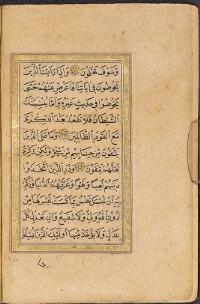 وَسَوْفَ تَعْلَمُونَ وَإِذَا رَأَيْتَ الَّذِينَ
يَخُوضُونَ فِي آيَاتِنَا فَأَعْرِضْ عَنْهُمْ حَتَّى
يَخُوضُوا فِي حَدِيثٍ غَيْرِهِ وَإِمَّا يُنْسِيَنَّكَ
الشَّيْطَانُ فَلَا تَقْعُدْ بَعْدَ الذِّكْرَى
مَعَ الْقَوْمِ الظَّالِمِينَ وَمَا عَلَى الَّذِينَ
يَتَّقُونَ مِنْ حِسَابِهِمْ مِنْ شَيْءٍ وَلَكِنْ ذِكْرَى
لَعَلَّهُمْ يَتَّقُونَ وَذَرِ الَّذِينَ اتَّخَذُوا
دِينَهُمْ لَعِبًا وَلَهْوًا وَغَرَّتْهُمُ الْحَيَاةُ الدُّنْيَا وَذَكِّرْ
بِهِ أَنْ تُبْسَلَ نَفْسٌ بِمَا كَسَبَتْ لَيْسَ لَهَا مِنْ
دُونِ اللَّهِ وَلِيٌّ وَلَا شَفِيعٌ وَإِنْ تَعْدِلْ كُلَّ
عَدْلٍ لَا يُؤْخَذْ مِنْهَا أُولَئِكَ الَّذِينَ أُبْسِلُوا
بما